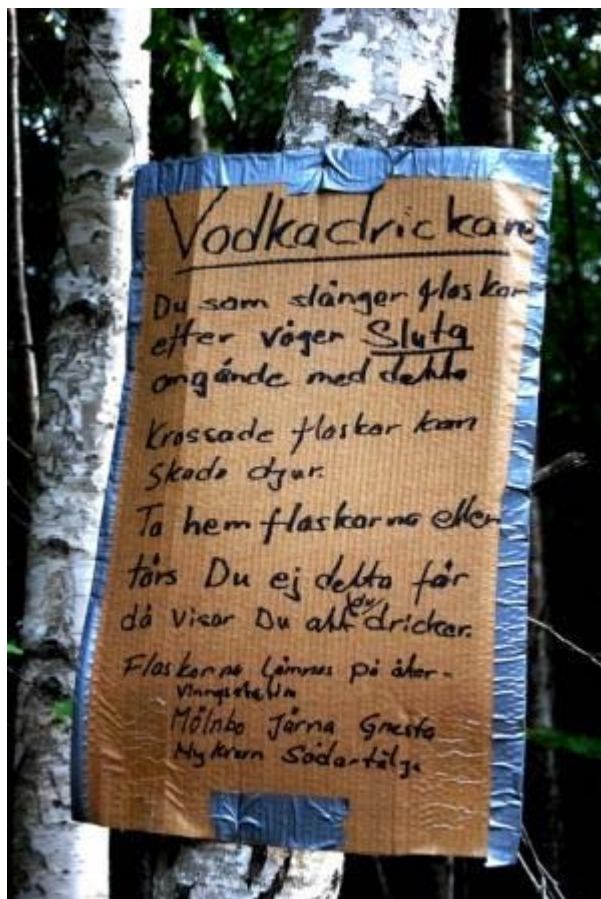 Vodkadrickare
Du som slänger flaskor
efter väger Sluta
angående med detta
Krossade flaskor kan
skada djur.
Ta hem flaskorna eller
törs Du ej detta för
då visar Du att du dricker.
Flaskorna lämnas på åter-
vinngsstation
Mölnbo Järna Gnesta
Nykvarn Södertälje